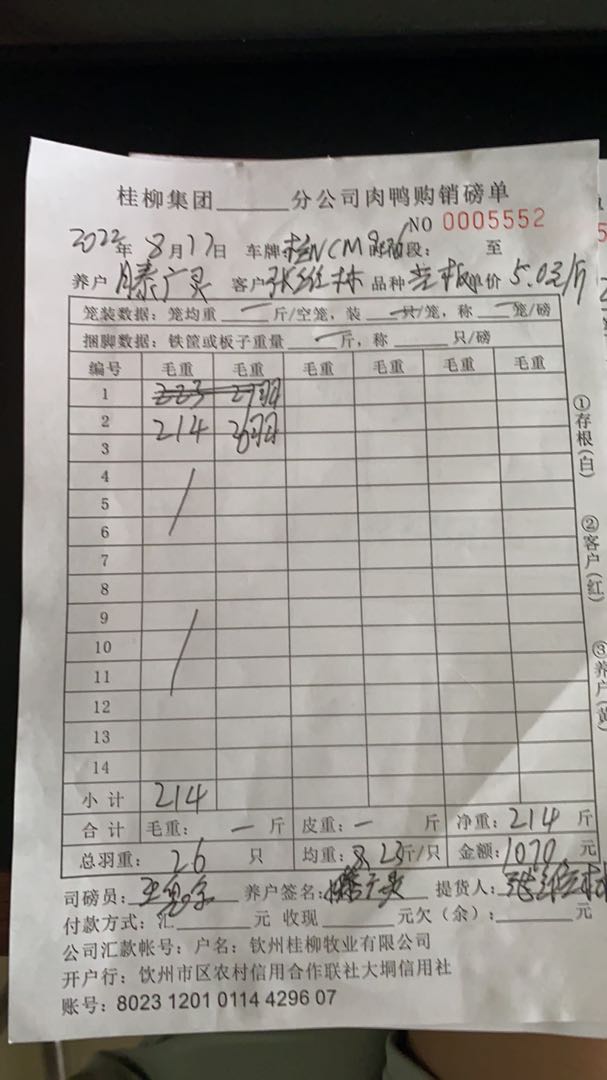 桂柳集团______分公司肉鸭购销磅单
NO 0005552
2022年8月17日 车牌: 时间段: 至
养户 滕广灵 客户 张红林 品种 单价 5.0元/斤
笼装数据: 笼均重 一 斤/空笼, 装 一 只/笼, 称 一 笼/磅
捆脚数据: 铁筐或板子重量 一 斤, 称______只/磅
编号 毛重 毛重 毛重 毛重 毛重 毛重
1 223 27羽
2 214 26羽
3
4
5
6
7
8
9
10
11
12
13
14
小计 214
合计 毛重: 一 斤 皮重: 一 斤 净重: 214 斤
总羽重: 26 只 均重: 8.23斤/只 金额: 1070 元
司磅员: 养户签名: 滕广灵 提货人:
付款方式: 汇______元 收现______元欠(余):______元
公司汇款帐号: 户名: 钦州桂柳牧业有限公司
开户行: 饮州市区农村信用合作联社大垌信用社
账号: 8023 1201 0114 4296 07
①存根(白)
②客户(红)
③养户(黄)